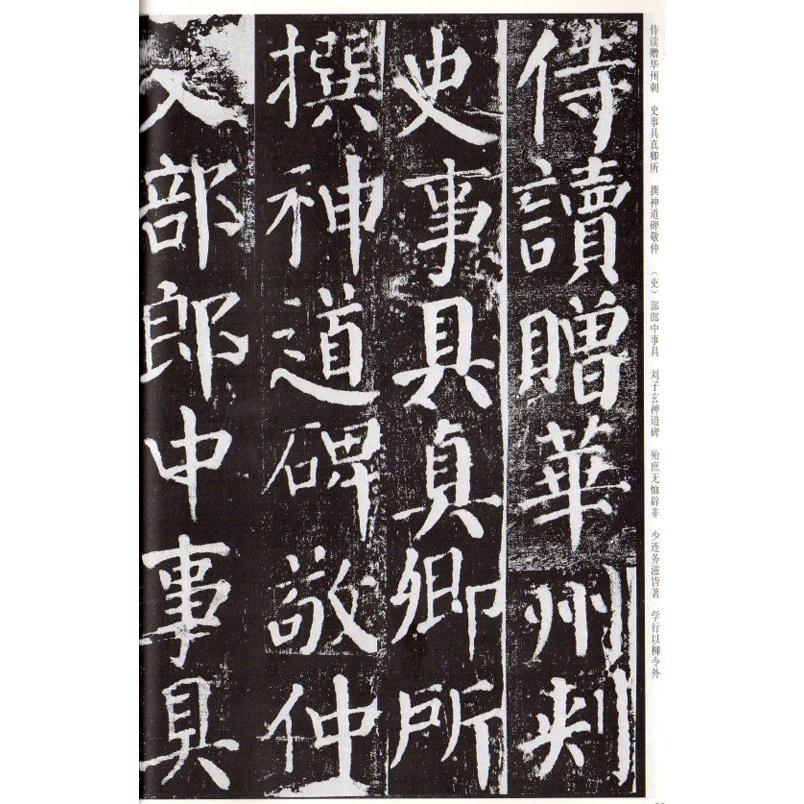 侍讀贈華州刺
史事具真卿所
撰神道碑敬仲
部郎中事具
侍读赠华州刺 史事具真卿所 撰神道碑敬仲 （吏）部郎中事具 刘子玄神道碑 殆庶无恤辟非 少连务滋皆著 学行以柳令外